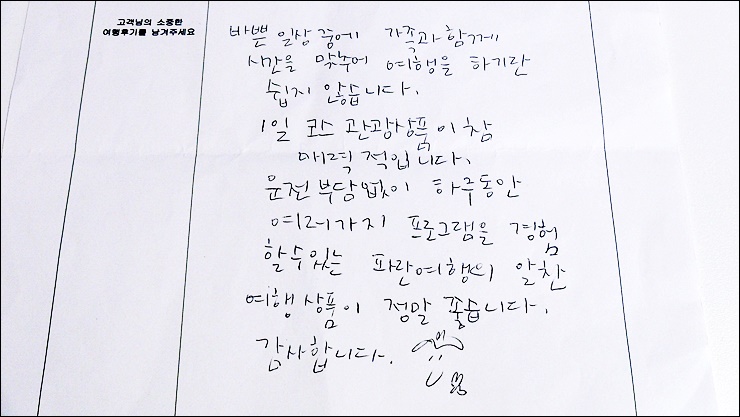 고객님의 소중한
여행후기를 남겨주세요
바쁜 일상 중에 가족과 함께
시간을 맞추어 여행을 하기란
쉽지 않습니다.
1일 코스 관광상품이 참
매력적입니다.
운전 부담없이 하루동안
여러가지 프로그램을 경험
할 수 있는 파란여행의 알찬
여행 상품이 정말 좋습니다.
감사합니다.